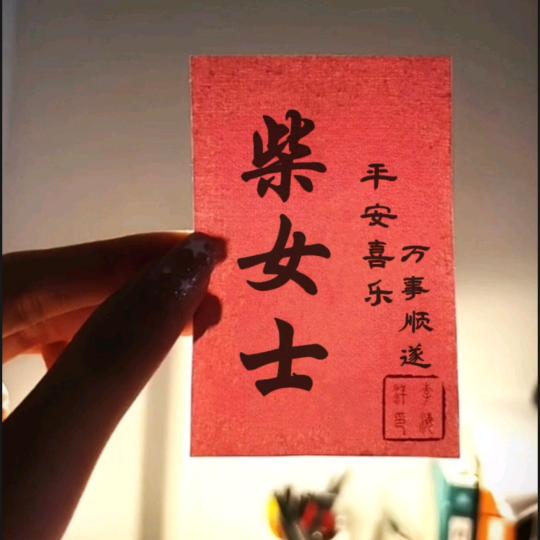 柴女士
平安喜乐
万事顺遂